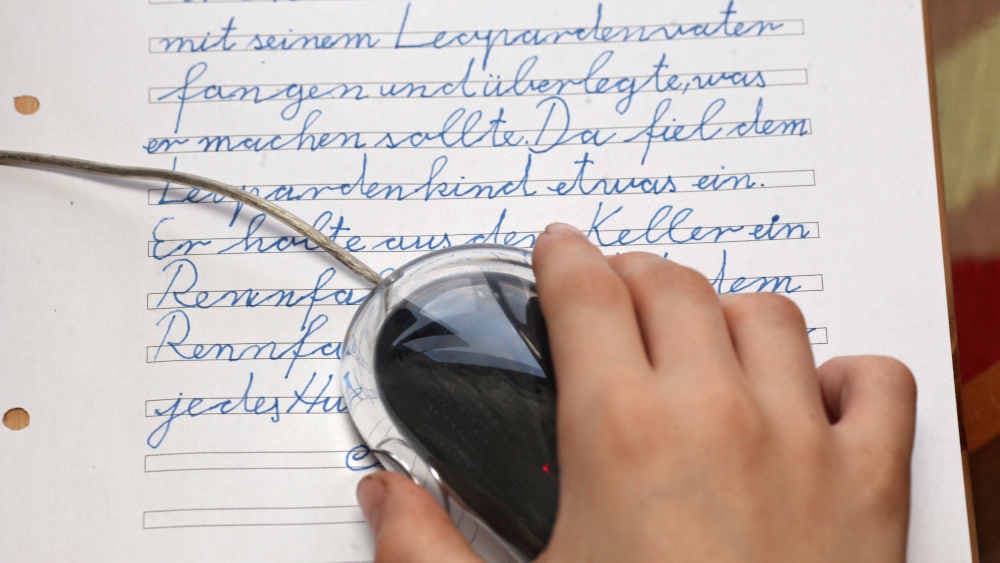 mit seinem Leopardenvater
fangen und überlegte, was
er machen sollte. Da fiel dem
Leopardenkind etwas ein.
Er holte aus dem Keller ein
Rennfa
dem
Rennfa
jedes Hu